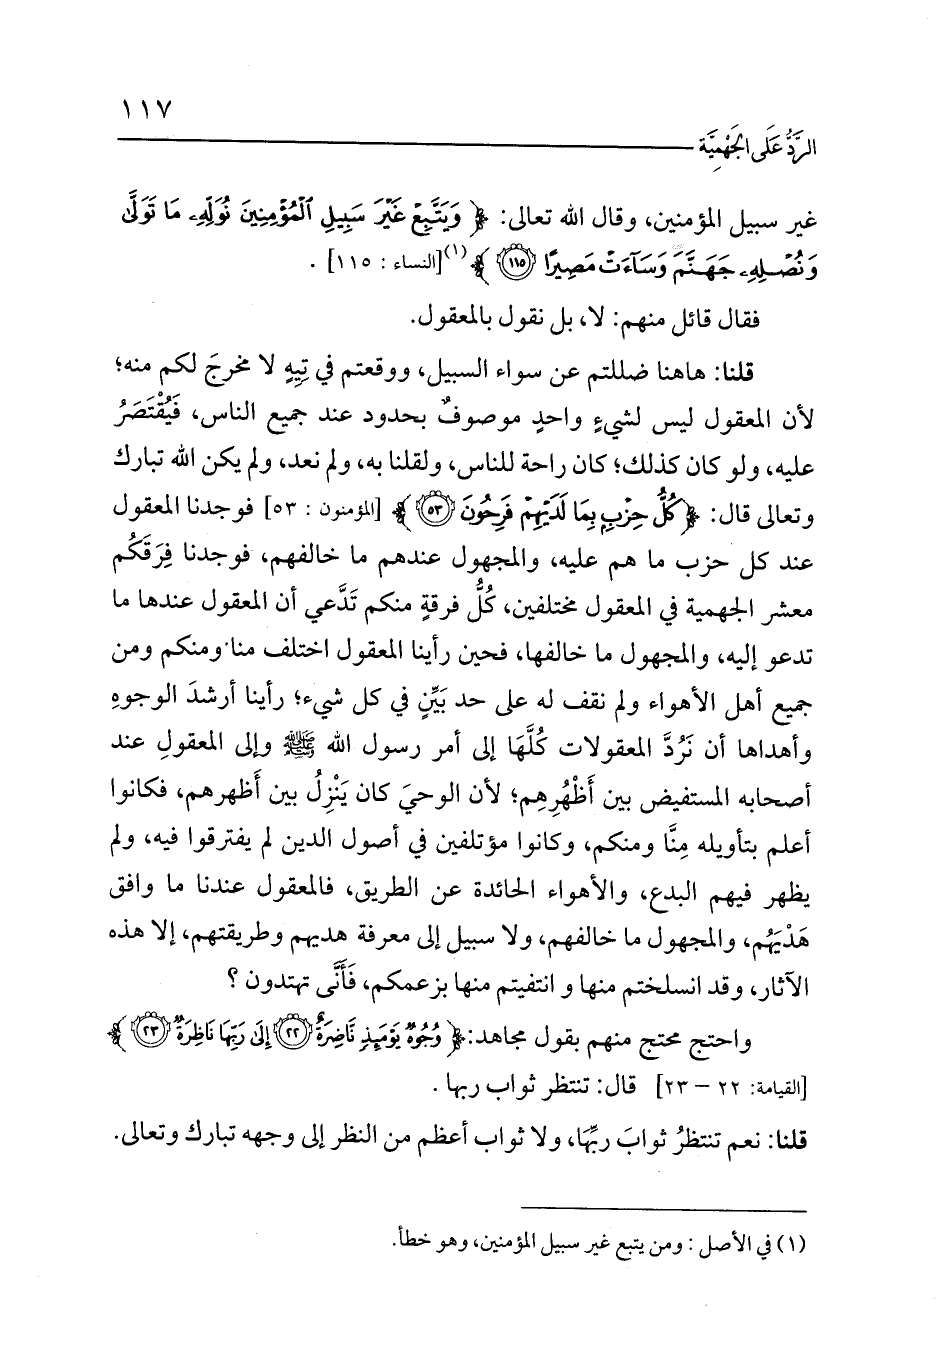 ١١٧
الرَّدُّ عَلَى الجَهْمِيَّة
غير سبيل المؤمنين، وقال الله تعالى: ﴿ وَيَتَّبِعْ غَيْرَ سَبِيلِ ٱلْمُؤْمِنِينَ نُوَلِّهِۦ مَا تَوَلَّىٰ
وَنُصْلِهِۦ جَهَنَّمَ وَسَآءَتْ مَصِيرًا ﴿١١٥﴾ ﴾(١) [النساء : ١١٥] .
فقال قائل منهم: لا، بل نقول بالمعقول.
قلنا: هاهنا ضللتم عن سواء السبيل، ووقعتم في تِيهٍ لا مخرجَ لكم منه؛
لأن المعقول ليس لشيءٍ واحدٍ موصوفٌ بحدود عند جميع الناس، فَيُقْتَصَرُ
عليه، ولو كان كذلك؛ كان راحة للناس، ولقلنا به، ولم نعد، ولم يكن الله تبارك
وتعالى قال: ﴿ كُلُّ حِزْبٍ بِمَا لَدَيْهِمْ فَرِحُونَ ﴿٥٣﴾ ﴾ [المؤمنون : ٥٣] فوجدنا المعقول
عند كل حزب ما هم عليه، والمجهول عندهم ما خالفهم، فوجدنا فِرَقَكُم
معشر الجهمية في المعقول مختلفين، كُلُّ فرقةٍ منكم تَدَّعي أن المعقول عندها ما
تدعو إليه، والمجهول ما خالفها، فحين رأينا المعقول اختلف منا ومنكم ومن
جميع أهل الأهواء ولم نقف له على حد بَيِّنٍ في كل شيء؛ رأينا أرشدَ الوجوهِ
وأهداها أن نَرُدَّ المعقولات كُلَّهَا إلى أمر رسول الله ﷺ وإلى المعقولِ عند
أصحابه المستفيض بين أَظْهُرِهِم؛ لأن الوحيَ كان يَنْزِلُ بين أَظهرهم، فكانوا
أعلم بتأويله مِنَّا ومنكم، وكانوا مؤتلفين في أصول الدين لم يفترقوا فيه، ولم
يظهر فيهم البدع، والأهواء الحائدة عن الطريق، فالمعقول عندنا ما وافق
هَدْيَهُم، والمجهول ما خالفهم، ولا سبيل إلى معرفة هديهم وطريقتهم، إلا هذه
الآثار، وقد انسلختم منها و انتفيتم منها بزعمكم، فَأَنَّى تهتدون ؟
واحتج محتج منهم بقول مجاهد: ﴿ وُجُوهٌ يَوْمَئِذٍ نَّاضِرَةٌ ﴿٢٢﴾ إِلَىٰ رَبِّهَا نَاظِرَةٌ ﴿٢٣﴾ ﴾
[القيامة: ٢٢ – ٢٣] قال: تنتظر ثواب ربها .
قلنا: نعم تنتظرُ ثوابَ ربِّهَا، ولا ثواب أعظم من النظر إلى وجهه تبارك وتعالى.
(١) في الأصل : ومن يتبع غير سبيل المؤمنين، وهو خطأ.